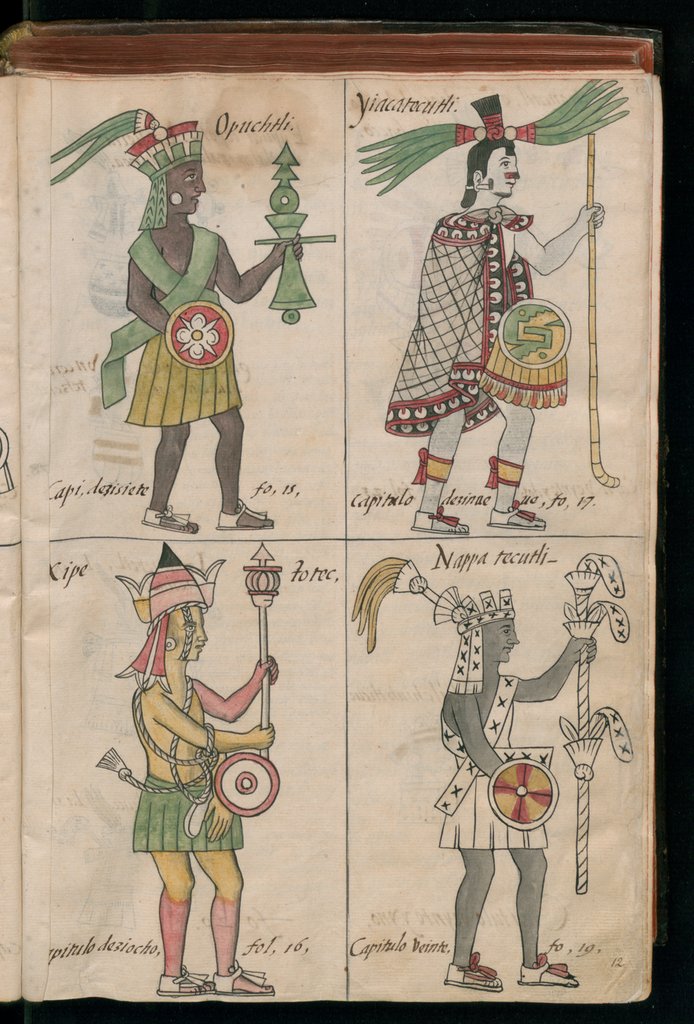 Opuchtli.
Capi, dezisiete fo, 15,
Yiacatecutli.
Capitulo dezinueue, fo, 17.
Xipe totec,
capitulo deziocho, fol, 16,
Nappa tecutli_
Capitulo veinte, fo, 19,
12